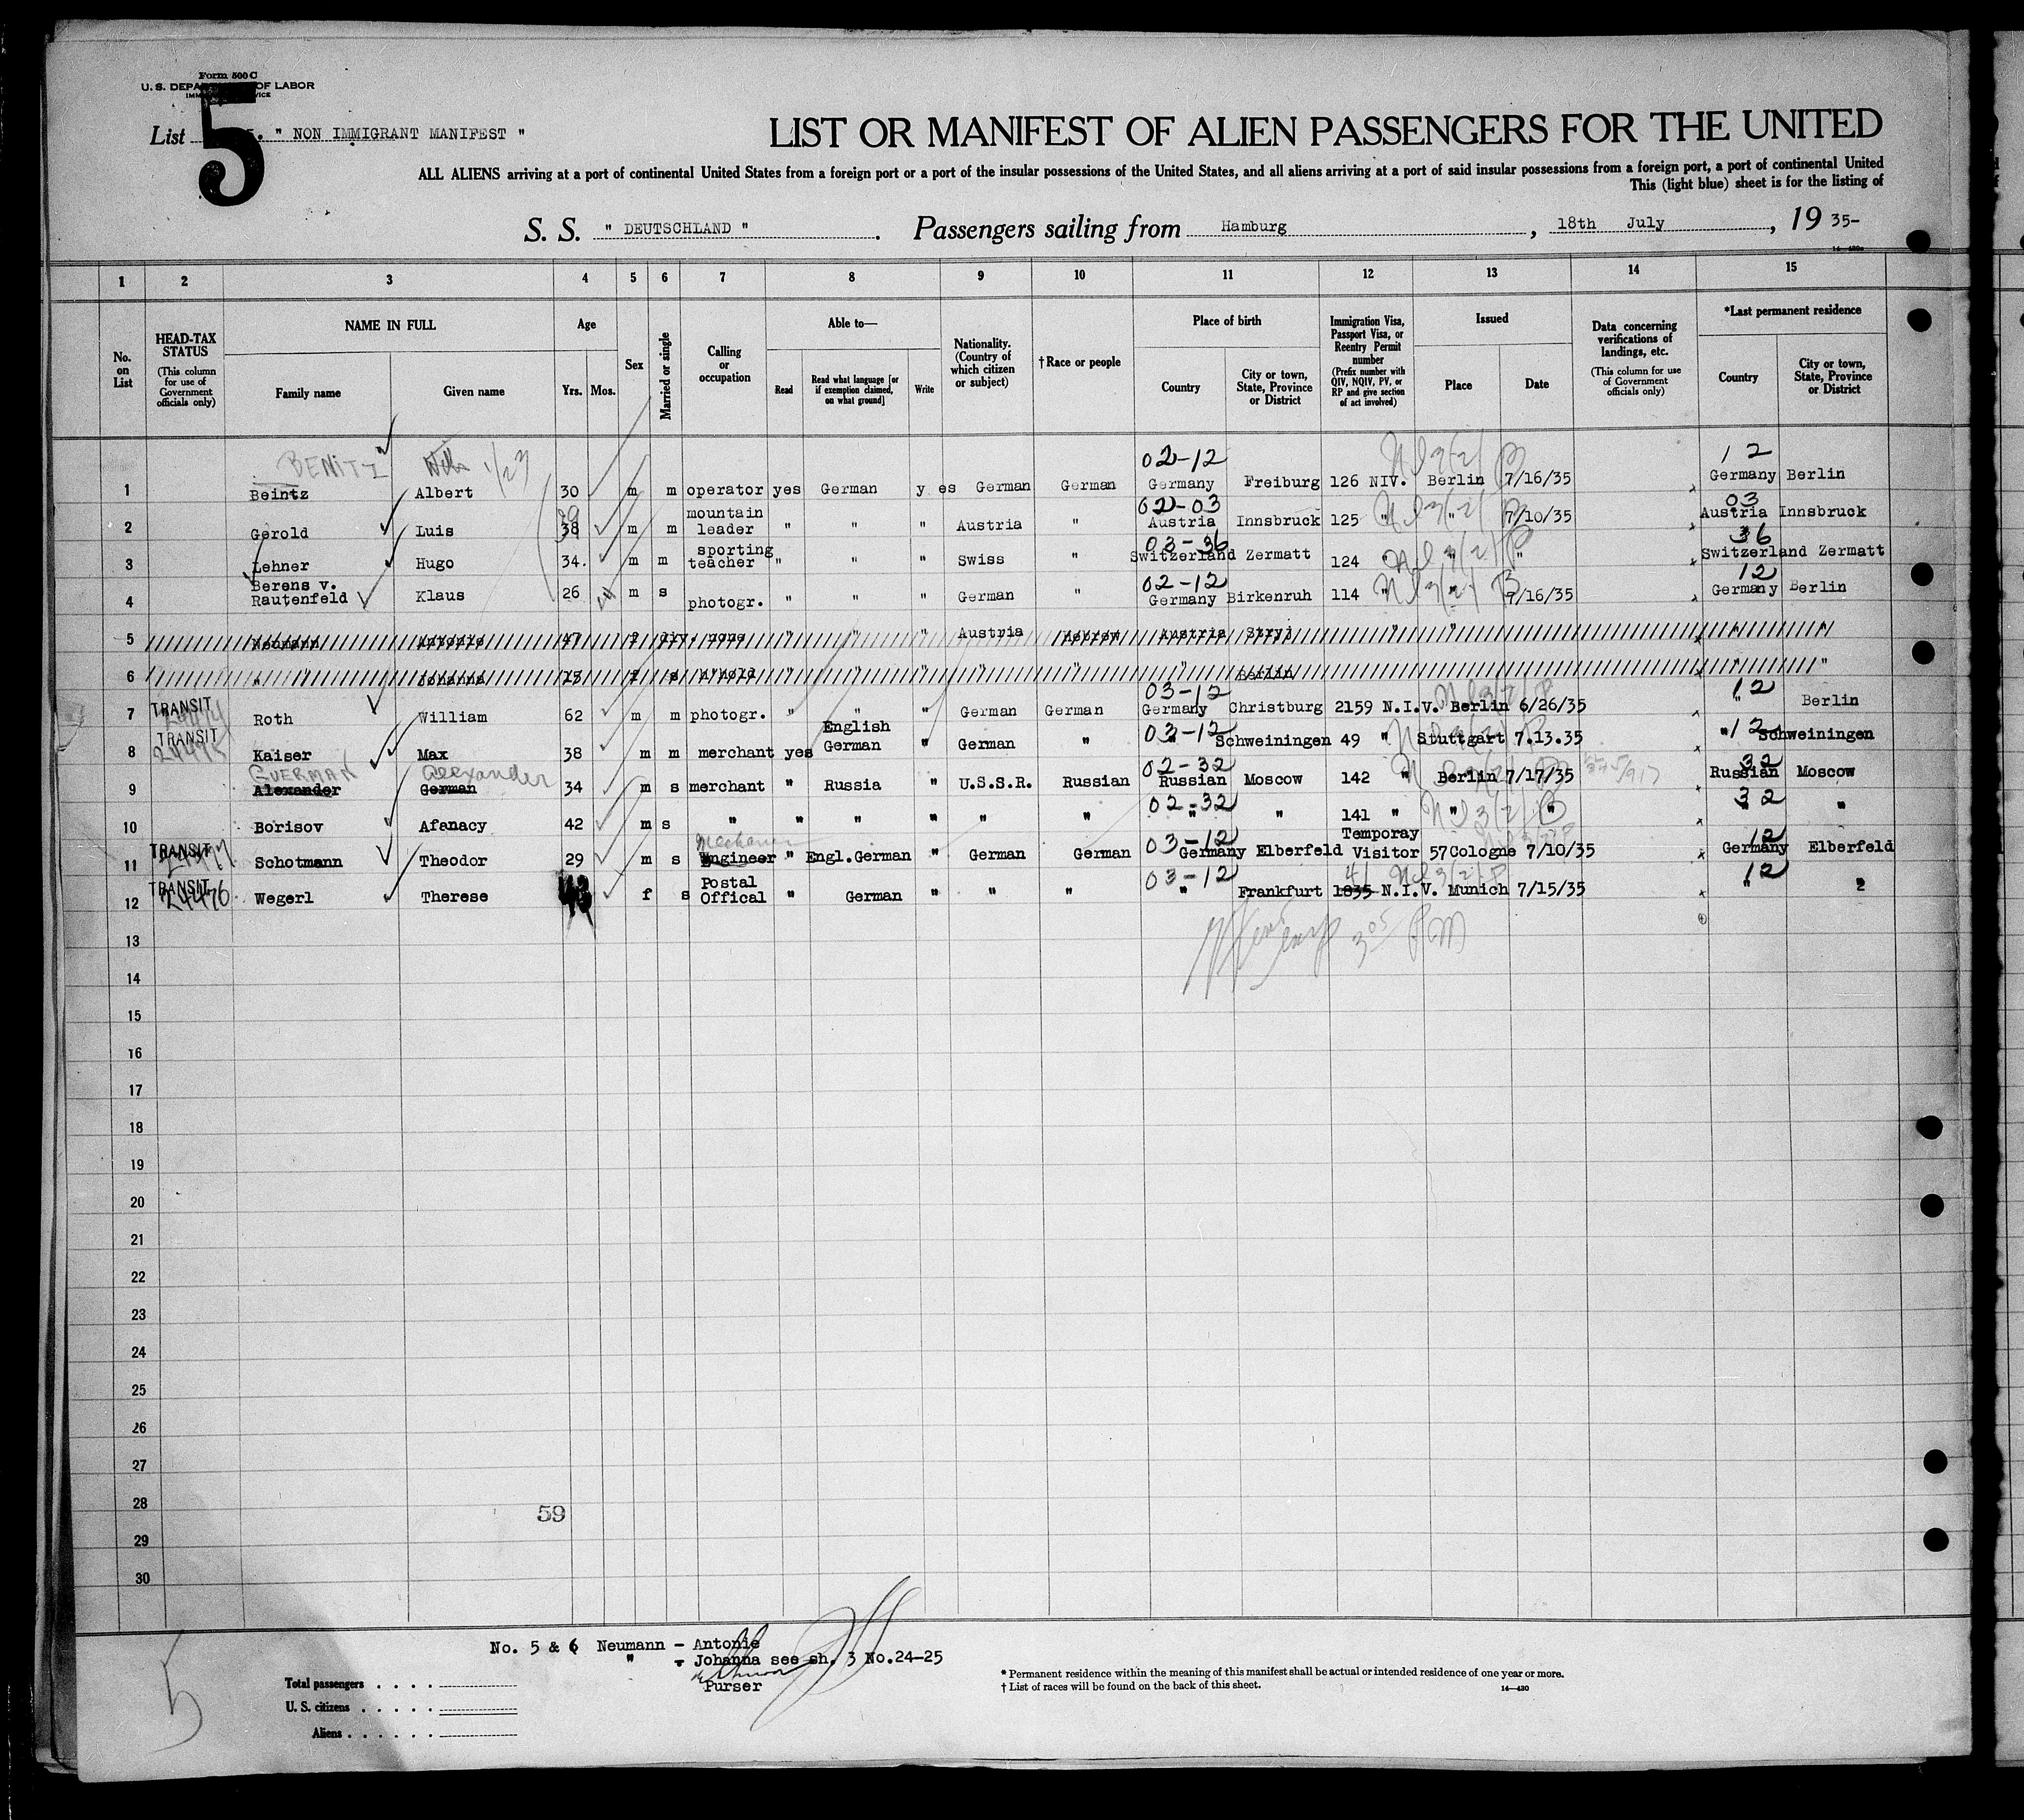 Form 500 C
U. S. DEPA OF LABOR
List 5. " NON IMMIGRANT MANIFEST "
5
LIST OR MANIFEST OF ALIEN PASSENGERS FOR THE UNITED
ALL ALIENS arriving at a port of continental United States from a foreign port or a port of the insular possessions of the United States, and all aliens arriving at a port of said insular possessions from a foreign port, a port of continental United
This (light blue) sheet is for the listing of
S. S. " DEUTSCHLAND ". Passengers sailing from Hamburg, 18th July, 19 35-
1 2 3 4 5 6 7 8 9 10 11 12 13 14 15
No. on List
HEAD-TAX STATUS
(This column for use of Government officials only)
NAME IN FULL
Family name Given name
Age
Yrs. Mos.
Sex
Married or single
Calling or occupation
Able to—
Read
Read what language [or if exemption claimed, on what ground]
Write
Nationality. (Country of which citizen or subject)
† Race or people
Place of birth
Country
City or town, State, Province or District
Immigration Visa, Passport Visa, or Reentry Permit number
(Prefix number with QIV, NQIV, PV, or RP and give section of act involved)
Issued
Place Date
Data concerning verifications of landings, etc.
(This column for use of Government officials only)
*Last permanent residence
Country
City or town, State, Province or District
BENITZ 02-12 12
1 Beintz Albert 30 m m operator yes German y es German German Germany Freiburg 126 NIV. Berlin 7/16/35 Germany Berlin
02-03 03
2 Gerold Luis 38 m m mountain leader " " " Austria " Austria Innsbruck 125 " " 7/10/35 Austria Innsbruck
03-36 36
3 Lehner Hugo 34. m m sporting teacher " " " Swiss " Switzerland Zermatt 124 " " " Switzerland Zermatt
02-12 12
4 Berens v. Rautenfeld Klaus 26 m s photogr. " " " German " Germany Birkenruh 114 " " 7/16/35 Germany Berlin
5 Neumann Antonie 47 f div. none " " " Austria Hebrew Austria Stryj " " " "
6 " Johanna s " " " " " " Berlin " "
TRANSIT 03-12 12
7 Roth William 62 m m photogr. " " " German German Germany Christburg 2159 N.I.V. Berlin 6/26/35 " Berlin
TRANSIT 03-12 12
8 Kaiser Max 38 m m merchant yes English German " German " " Schweiningen 49 " Stuttgart 7.13.35 " Schweiningen
GUERMAN Alexander 02-32 32
9 Alexander German 34 m s merchant " Russia " U.S.S.R. Russian Russian Moscow 142 " Berlin 7/17/35 Russian Moscow
02-32 32
10 Borisov Afanacy 42 m s " " " " " " " " 141 " " " " "
TRANSIT 03-12 12
11 Schotmann Theodor 29 m s Engineer " Engl.German " German German Germany Elberfeld Temporay Visitor 57 Cologne 7/10/35 Germany Elberfeld
TRANSIT 24476 03-12 12
12 Wegerl Therese 43 f s Postal Offical " German " " " " Frankfurt 1835 N.I.V. Munich 7/15/35 " 2
13
14
15
16
17
18
19
20
21
22
23
24
25
26
27
28
59
29
30
No. 5 & 6 Neumann - Antonie
" - Johanna see sh. 3 No.24-25
Purser
5
Total passengers . . . .
U. S. citizens . . . . .
Aliens . . . . . .
* Permanent residence within the meaning of this manifest shall be actual or intended residence of one year or more.
† List of races will be found on the back of this sheet.
14—430